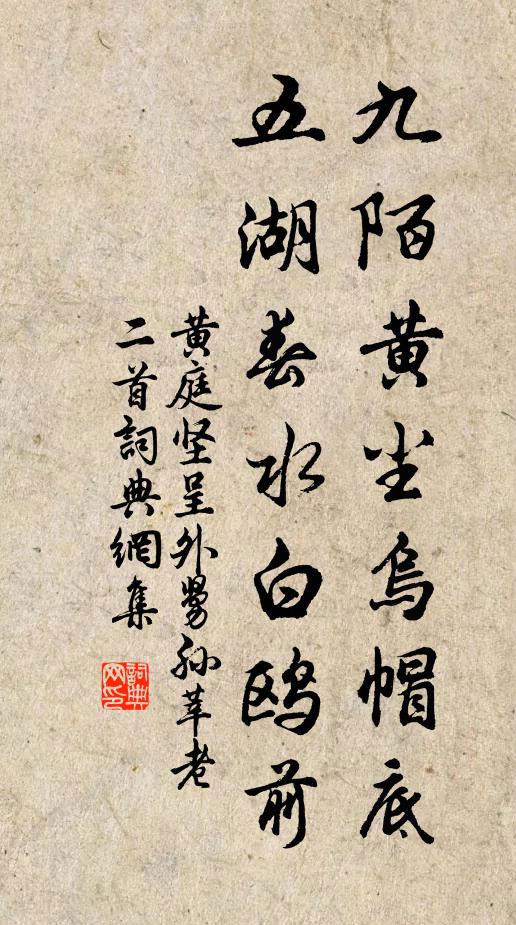 九陌黄尘烏帽底
五湖春水白鸥前
黄庭坚呈外舅孙莘老
二首詞典網集
詞典
网印